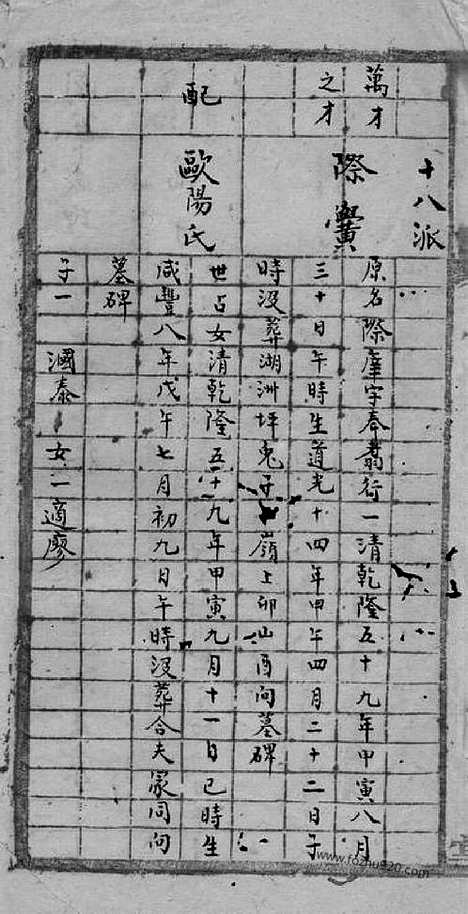 十八派
萬才
之才
際黌
原名際庠字奉翥行一清乾隆五十九年甲寅八月
三十日午時生道光十四年甲午四月二十二日子
時没葬湖洲坪兔子嶺上卯山酉向墓碑
配
歐陽氏
世占女清乾隆五十九年甲寅九月十一日巳時生
咸豐八年戊午七月初九日午時没葬合夫冢同向
墓碑
子一 國泰 女一適廖
www.fozhu920.com